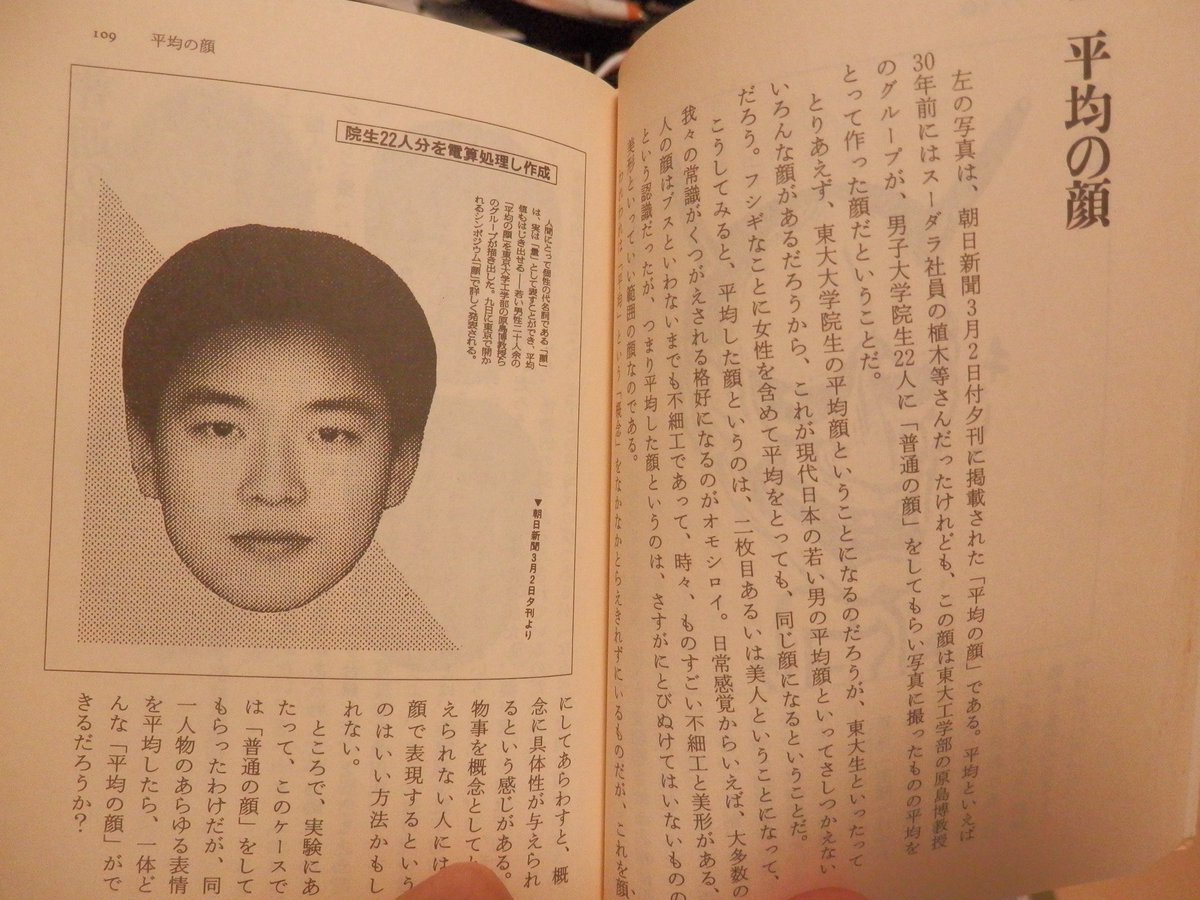 平均の顔
左の写真は、朝日新聞3月2日付夕刊に掲載された「平均の顔」である。平均といえば
30年前にはスーダラ社員の植木等さんだったけれども、この顔は東大工学部の原島博教授
のグループが、男子大学院生22人に「普通の顔」をしてもらい写真に撮ったものの平均を
とって作った顔だということだ。
とりあえず、東大大学院生の平均顔ということになるのだろうが、東大生といったって
いろんな顔があるだろうから、これが現代日本の若い男の平均顔といってさしつかえない
だろう。フシギなことに女性を含めて平均をとっても、同じ顔になるということだ。
こうしてみると、平均した顔というのは、二枚目あるいは美人ということになって、
我々の常識がくつがえされる格好になるのがオモシロイ。日常感覚からいえば、大多数の
人の顔はブスといわないまでも不細工であって、時々、ものすごい不細工と美形がある、
という認識だったが、つまり平均した顔というのは、さすがにとびぬけてはいないものの
美形といっていい範囲の顔なのである。
われわれは「平均」という「概念」をなかなかとらえきれずにいるものだが、これを顔
109 平均の顔
院生22人分を電算処理し作成
人間にとって個性の代名詞である「顔」
は、実は「量」として表すことができ、平均
値もはじき出せる――若い男性二十人余の
「平均の顔」を東京大学工学部の原島博教授ら
のグループが描き出した。九日に東京で開か
れるシンポジウム「顔」で詳しく発表される。
▼朝日新聞3月2日夕刊より
にしてあらわすと、概
念に具体性が与えられ
るという感じがある。
物事を概念としてと
えられない人には
顔で表現するという
のはいい方法かもし
れない。
ところで、実験にあ
たって、このケースで
は「普通の顔」をして
もらったわけだが、同
一人物のあらゆる表情
を平均したら、一体ど
んな「平均の顔」がで
きるだろうか?